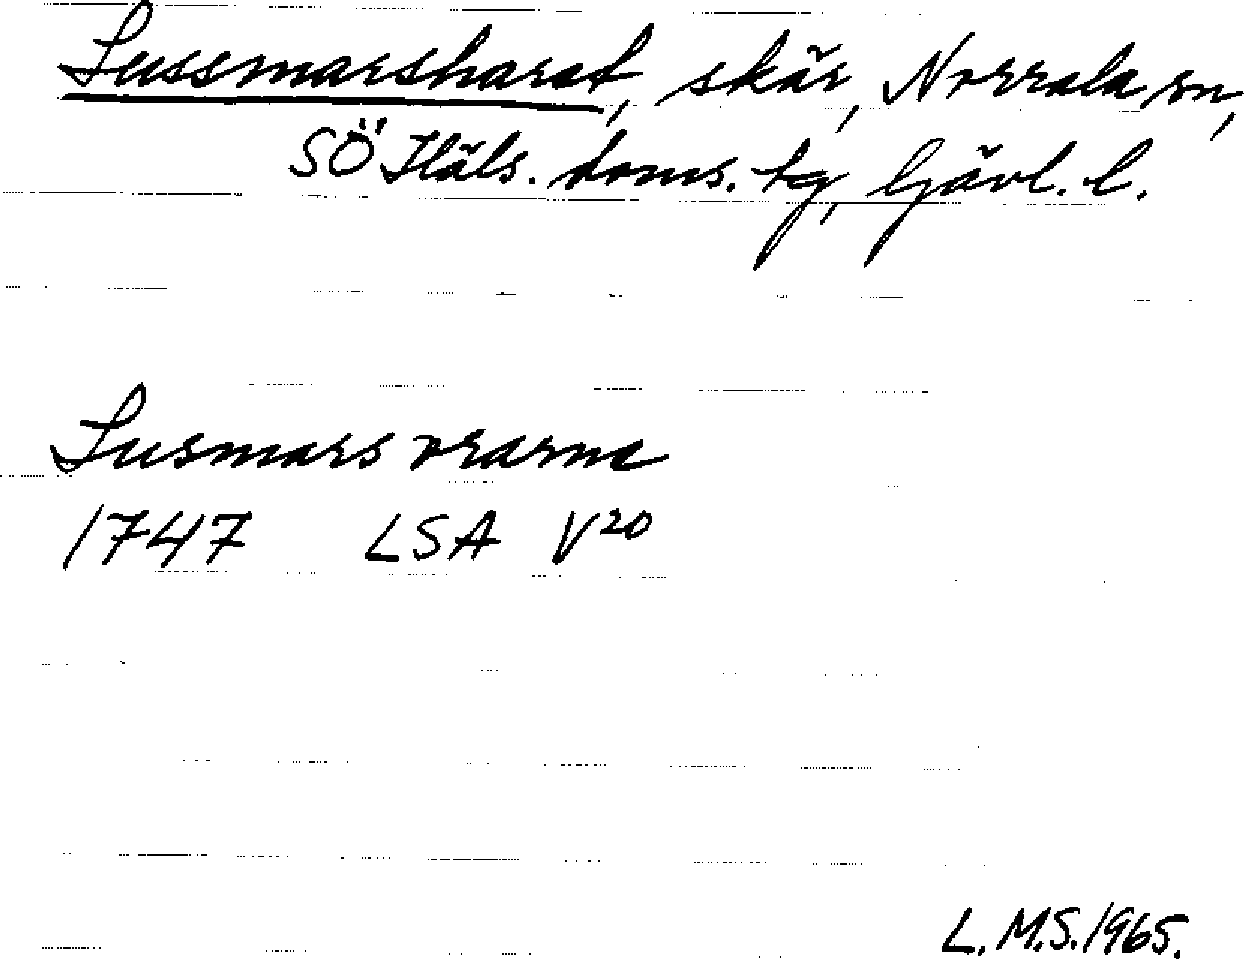 Lussmarsharet, skär, Norrala sn,
SÖ Häls. doms. tg, Gävl. l.
Lusmars orarne
1747 LSA V20
L.M.S. 1965.